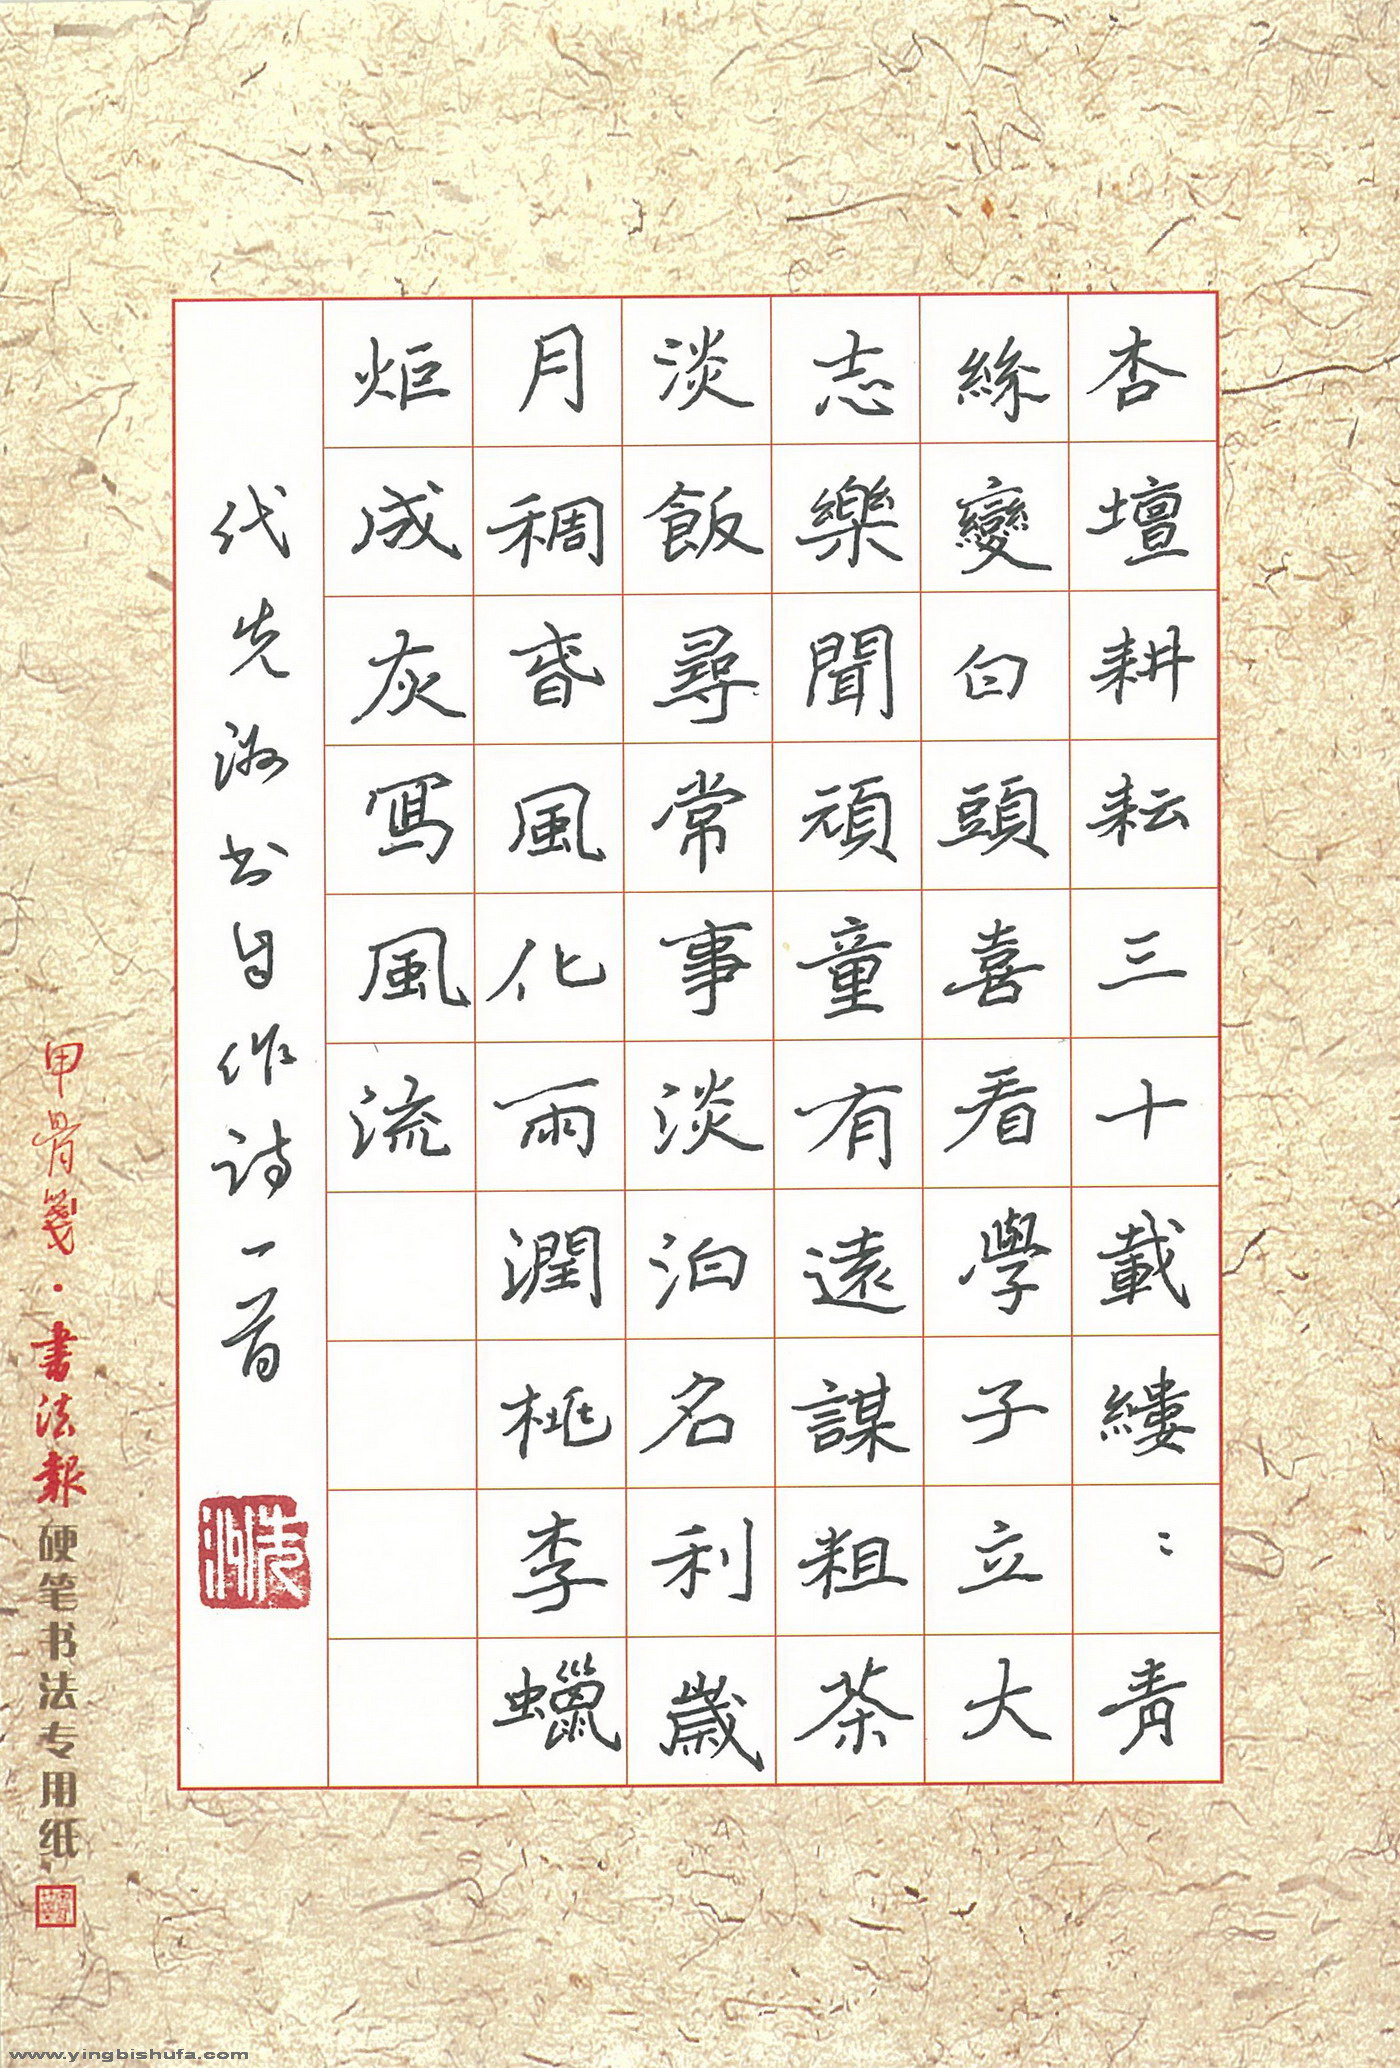 杏壇耕耘三十載縷〻青
絲變白頭喜看學子立大
志樂聞頑童有遠謀粗茶
淡飯尋常事淡泊名利歲
月稠春風化雨潤桃李蠟
炬成灰寫風流
代先洲书自作诗一首
先洲
甲骨箋·書法報硬笔书法专用纸
www.yingbishufa.com